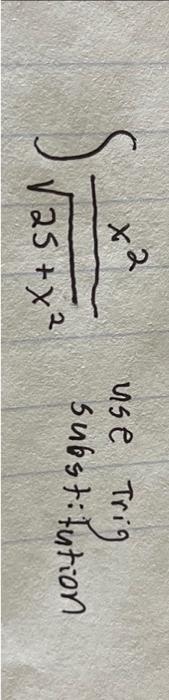 ∫ x² / √25 + x²
use Trig
substitution